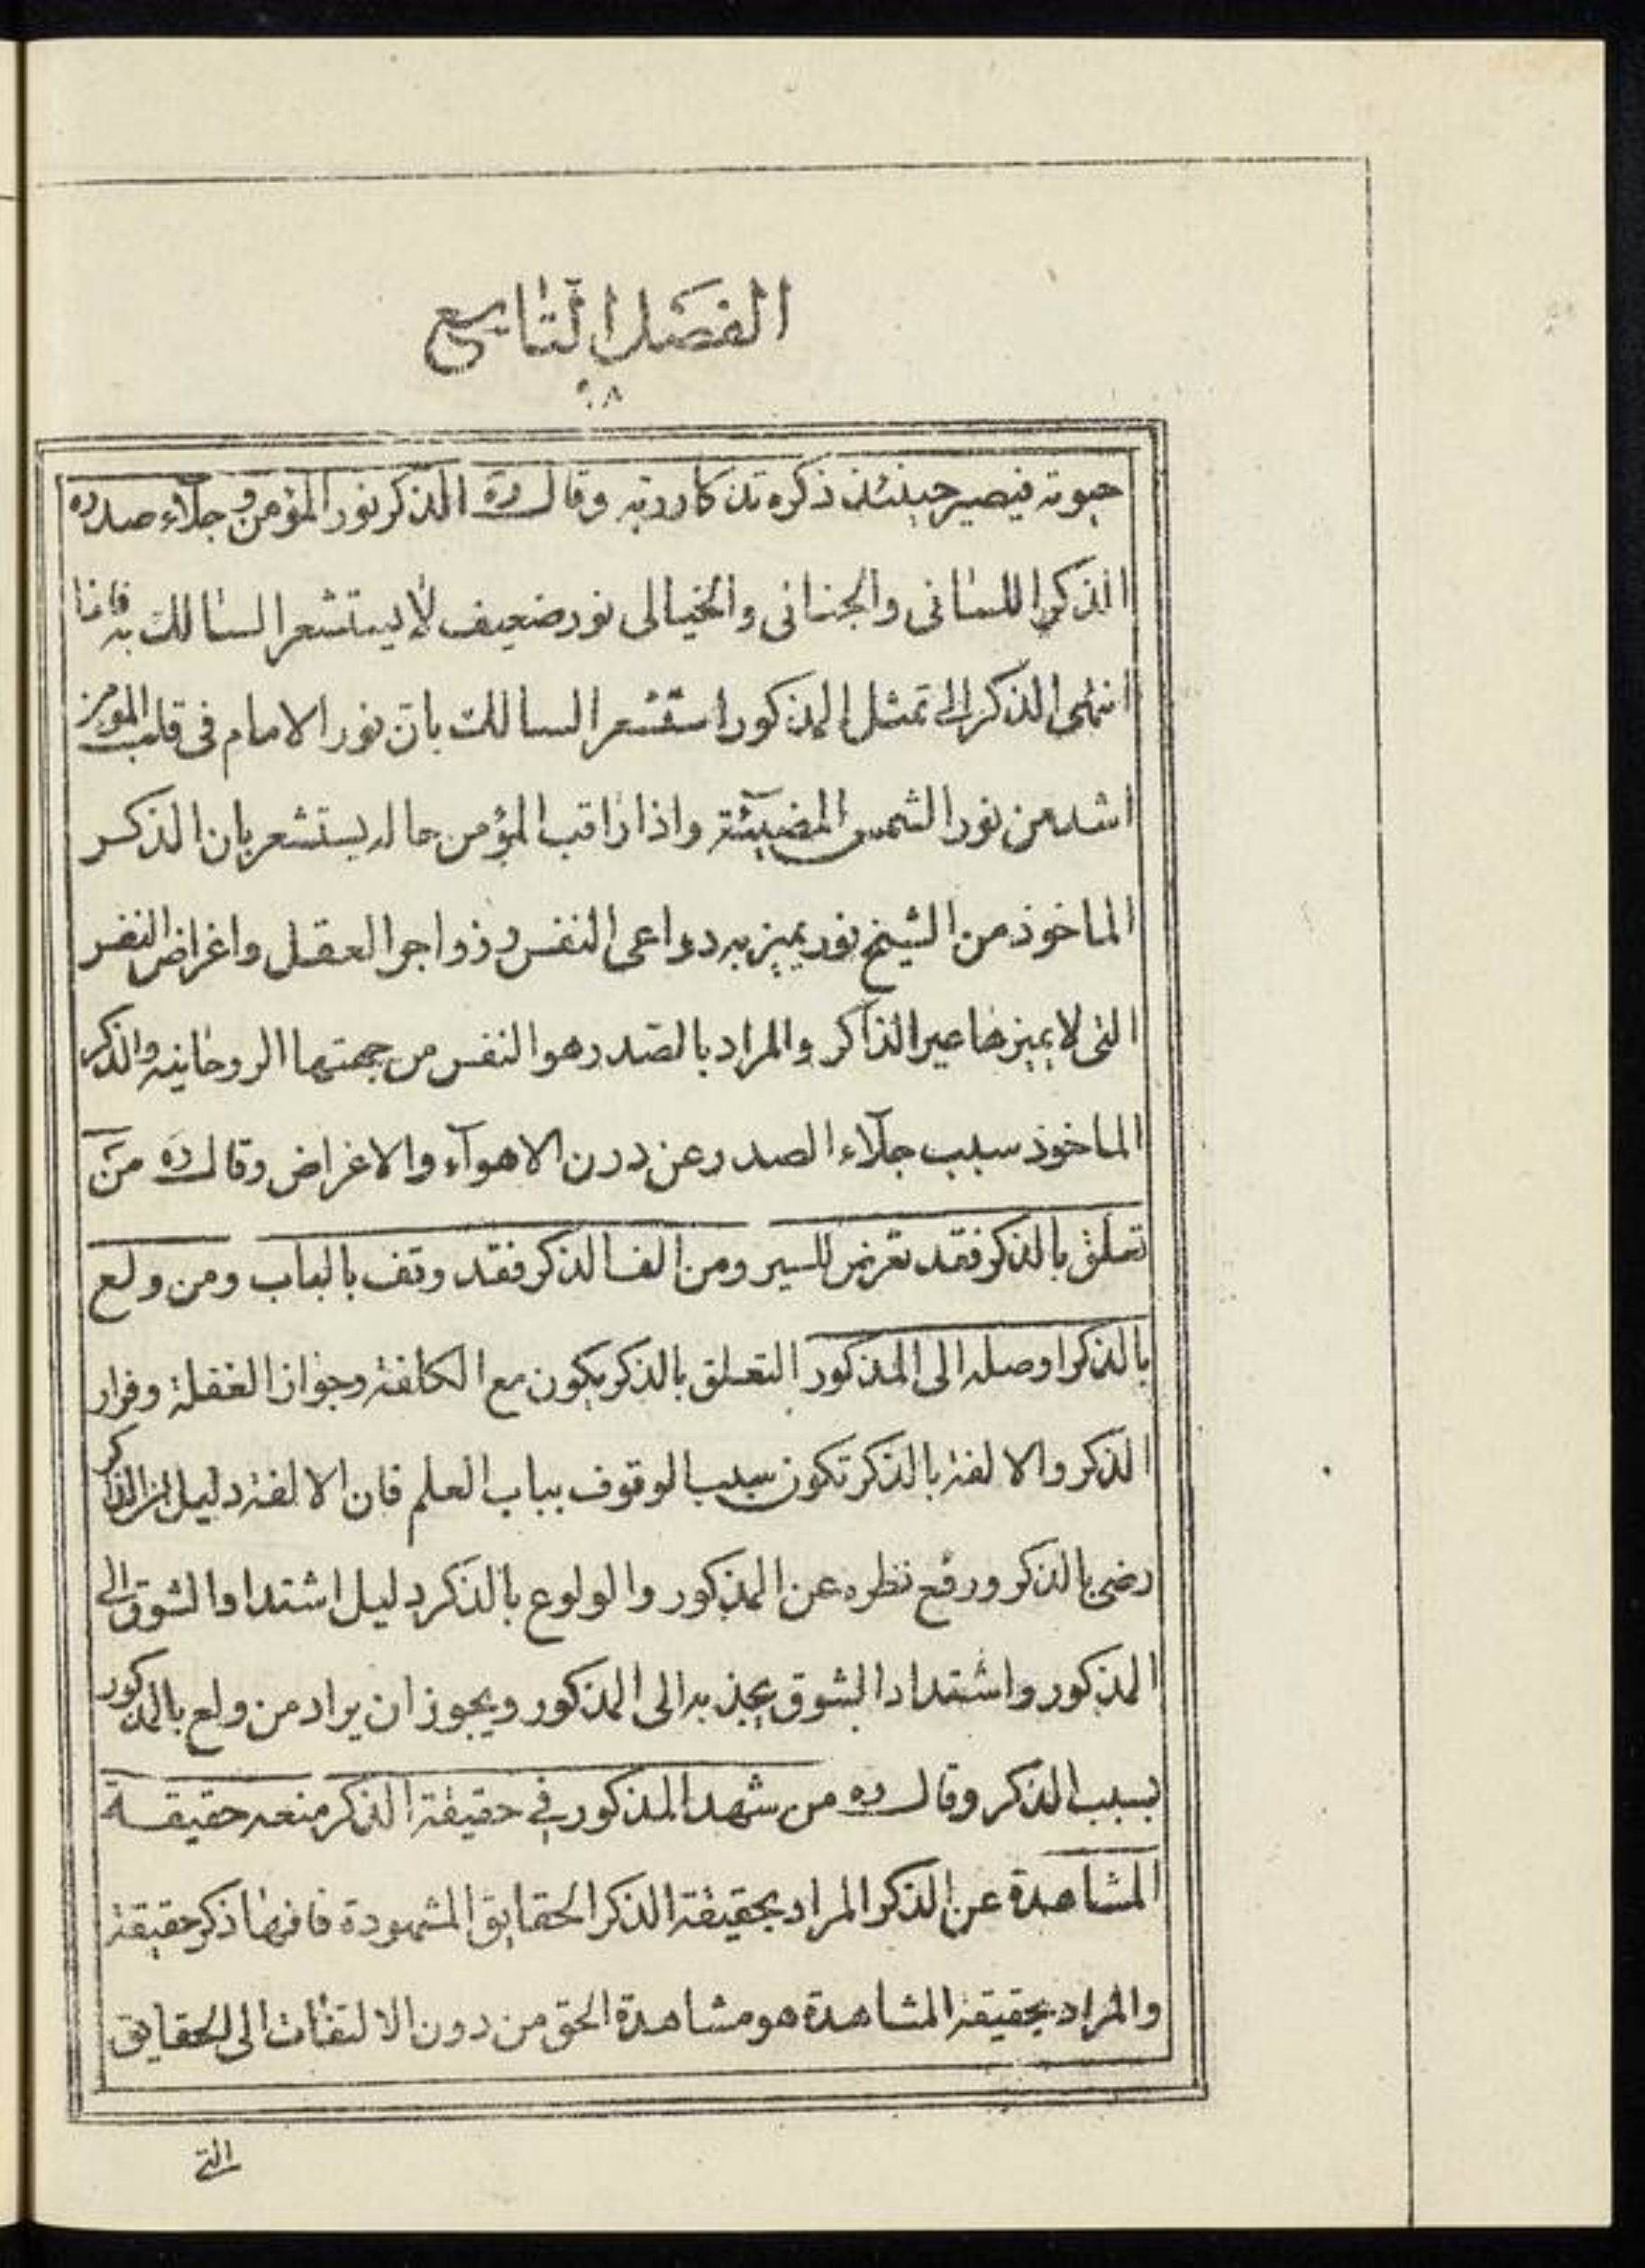 الفصل التاسع
٩٨
حيوته فيصير حينئذ ذكره تذكار ربه وقال ره الذكر نور المؤمن وجلاء صدره
الذكر اللسانى والجنانى والخيالى نور ضعيف لا يستشعر السالك به فاذا
انتهى الذكر الى تمثل المذكور استشعر السالك بان نور الامام فى قلب المومن
اشد من نور الشمس المضيئة واذا راقب المؤمن حاله يستشعر بان الذكر
الماخوذ من الشيخ نور يميز به دواعى النفس وزواجر العقل واغراض النفس
التى لا يميزها غير الذاكر والمراد بالصدر هو النفس من جهتها الروحانية والذكر
الماخوذ سبب جلآء الصدر عن درن الاهوآء والاغراض وقال ره من
تعلق بالذكر فقد تعرض للسير ومن الف الذكر فقد وقف بالباب ومن ولع
بالذكر اوصله الى المذكور التعلق بالذكر يكون مع الكلفة وجواز الغفلة وفرار
الذكر والالفة بالذكر تكون سبب الوقوف بباب العلم فان الالفة دليل ان الذاكر
رضى بالذكر ورفع نظره عن المذكور والولوع بالذكر دليل اشتداد الشوق الى
المذكور واشتداد الشوق يجذبه الى المذكور ويجوز ان يراد من ولع بالمذكور
بسبب الذكر وقال ره من شهد المذكور فى حقيقة الذكر منعه حقيقة
المشاهدة عن الذكر المراد بحقيقة الذكر الحقايق المشهودة فانها ذكر حقيقة
والمراد بحقيقة المشاهدة هو مشاهدة الحق من دون الالتفات الى الحقايق
التى